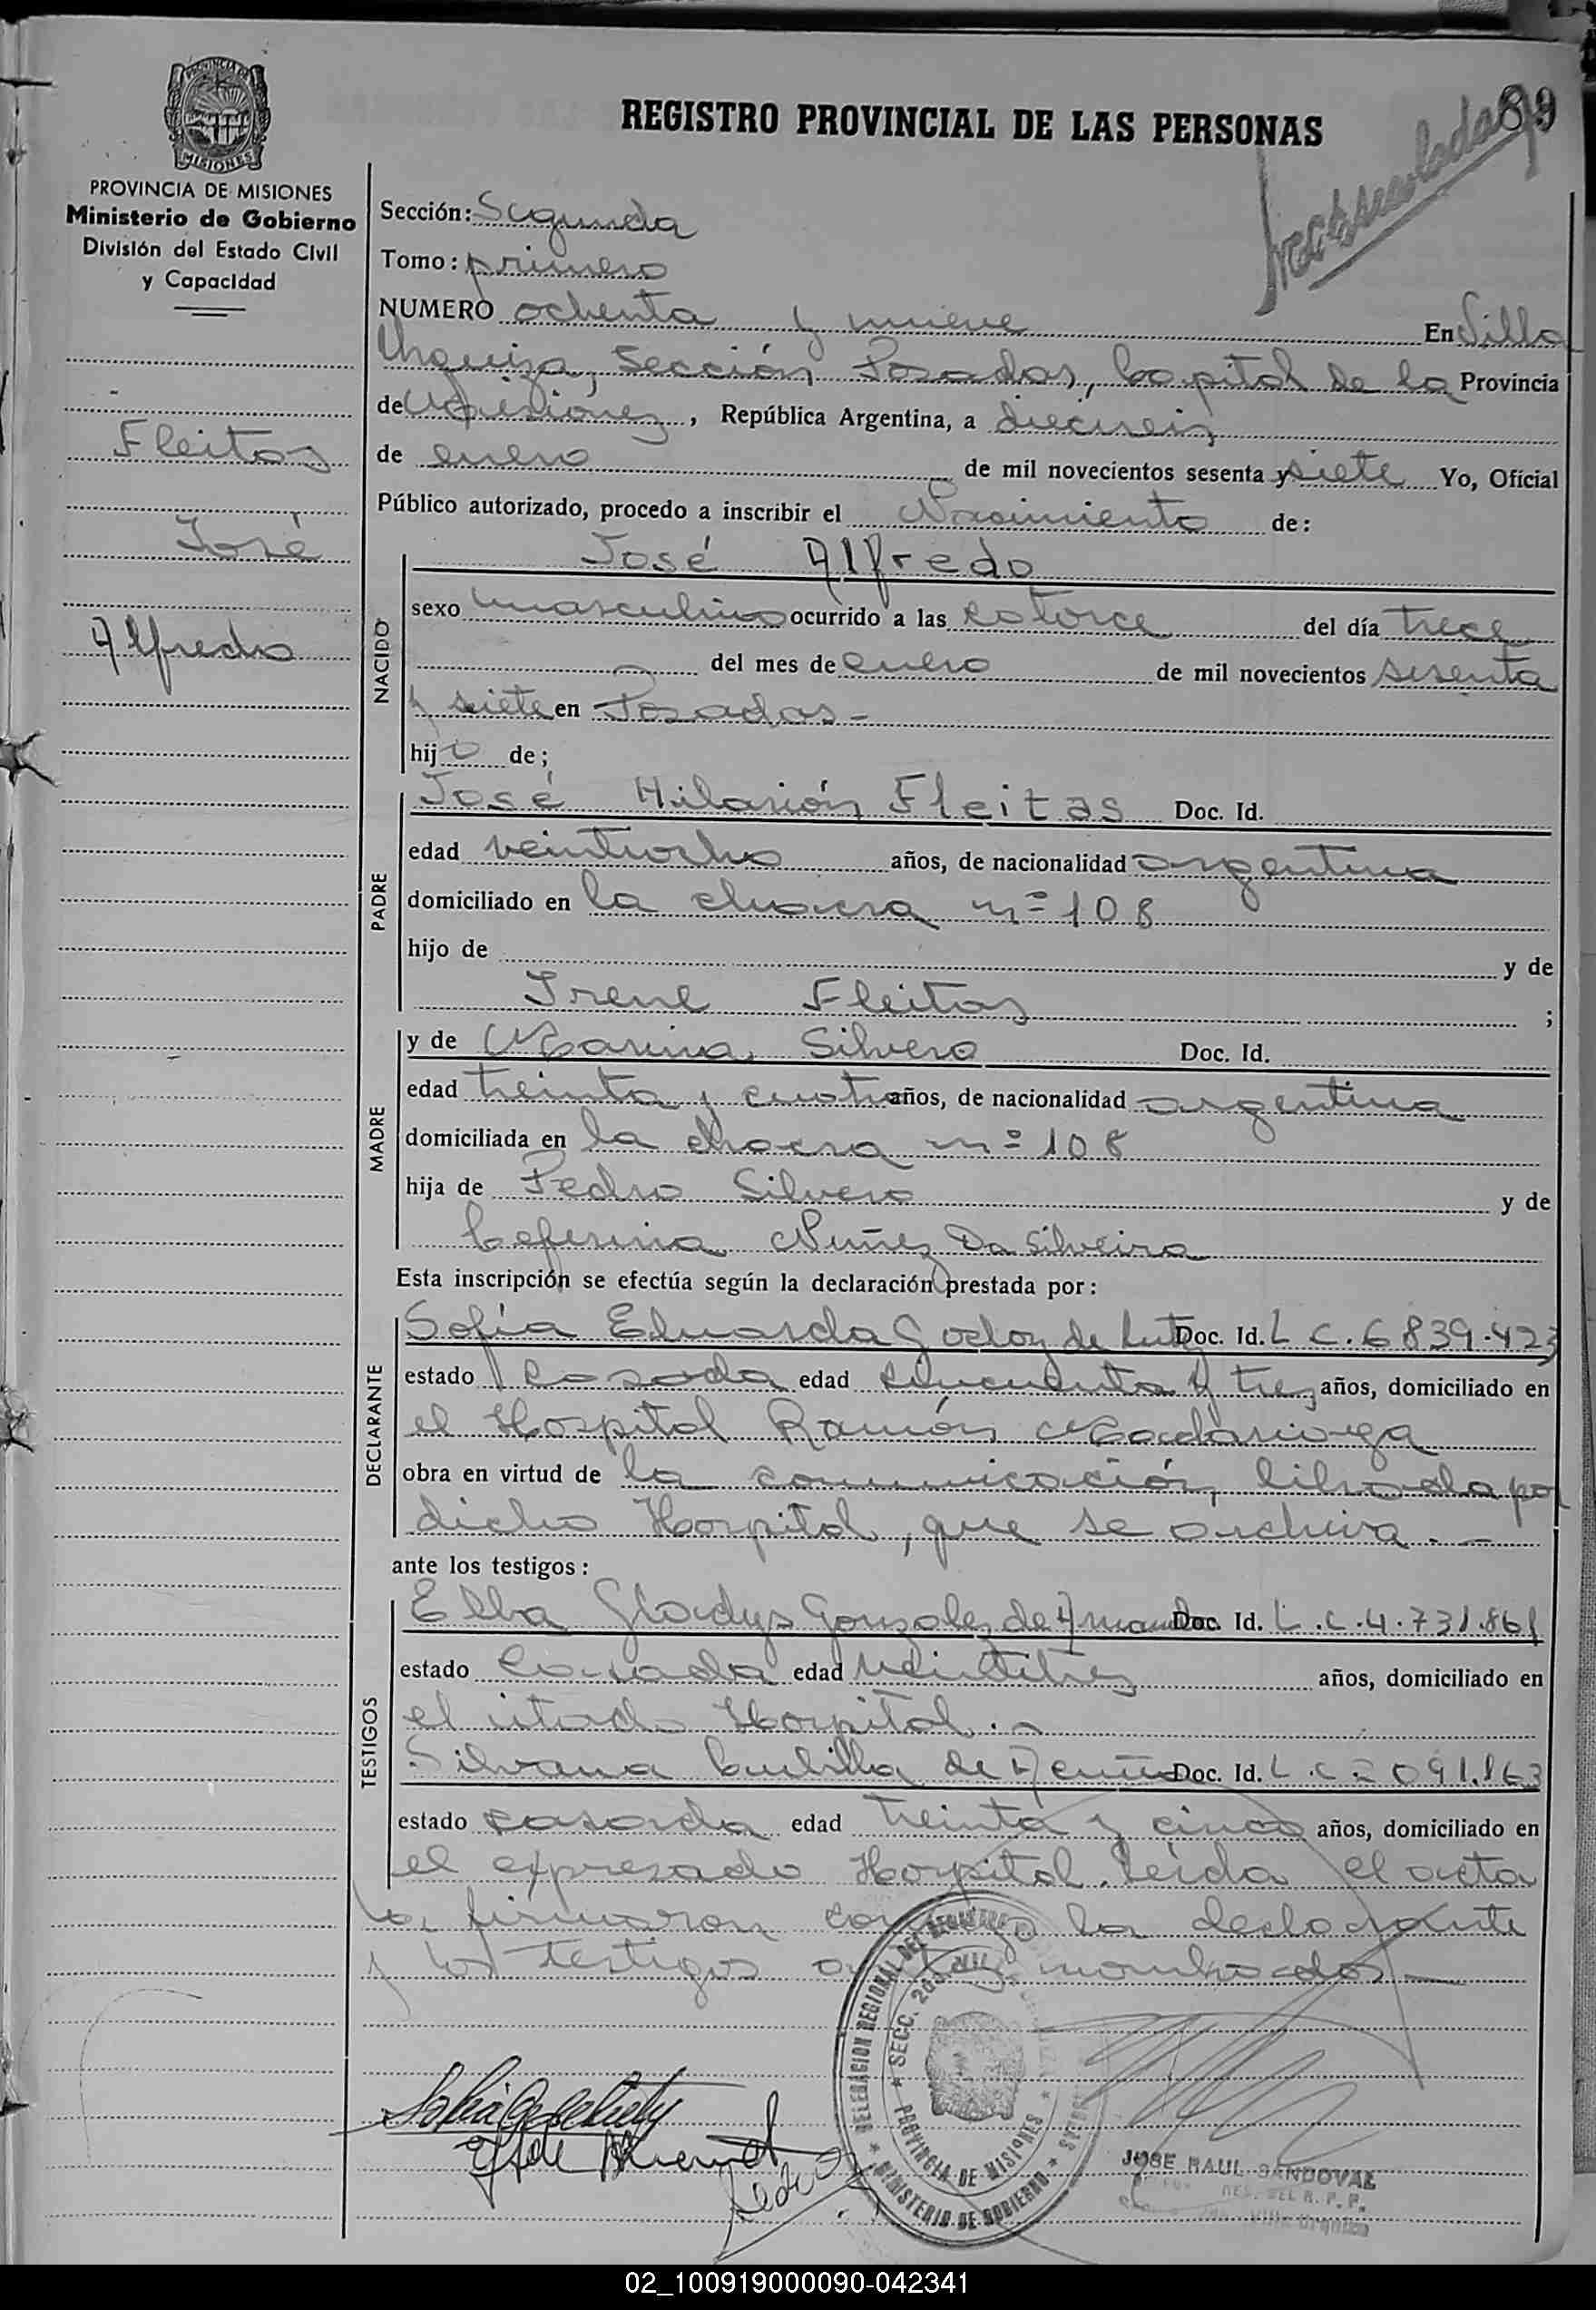 REGISTRO PROVINCIAL DE LAS PERSONAS
89
PROVINCIA DE MISIONES
Ministerio de Gobierno
División del Estado Civil
y Capacidad
Fleitas
José
Alfredo
Sección: Segunda
Tomo: primero
NUMERO ochenta y nueve En Villa
Urquiza, Sección Posadas, Capital de la Provincia
de Misiones, República Argentina, a dieciseis
de enero de mil novecientos sesenta y siete Yo, Oficial
Público autorizado, procedo a inscribir el Nacimiento de:
NACIDO
José Alfredo
sexo masculino ocurrido a las catorce del día trece
del mes de enero de mil novecientos sesenta
y siete en Posadas.-
hijo de;
PADRE
José Hilarión Fleitas Doc. Id.
edad veintiocho años, de nacionalidad argentina
domiciliado en la chacra nº 108
hijo de y de
Irene Fleitas ;
MADRE
y de Marina Silvero Doc. Id.
edad treinta y cuatro años, de nacionalidad argentina
domiciliada en la chacra nº 108
hija de Pedro Silvero y de
Ceferina Nuñez Da Silveira
Esta inscripción se efectúa según la declaración prestada por:
DECLARANTE
Sofía Eduarda Godoy de Doc. Id. L C. 6839.423
estado casada edad cincuenta y tres años, domiciliado en
el Hospital Ramón Madariaga
obra en virtud de la comunicación, librada por
dicho Hospital, que se archiva.-
ante los testigos:
TESTIGOS
Elba Gladys Gonzalez de Doc. Id. L.C.4.731.861
estado casada edad veintitres años, domiciliado en
el citado Hospital.-
Silvana de Doc. Id. L.C. 2091.163
estado casada edad treinta y cinco años, domiciliado en
el expresado Hospital. Leída el acta
la firmaron conmigo la declarante
y los testigos mombrados
DELEGACION REGIONAL DEL REGISTRO
SECC.
PROVINCIA DE MISIONES
MINISTERIO DE GOBIERNO
JOSE RAUL SANDOVAL
DEL R. P. P.
Villa Urquiza
02_100919000090-042341